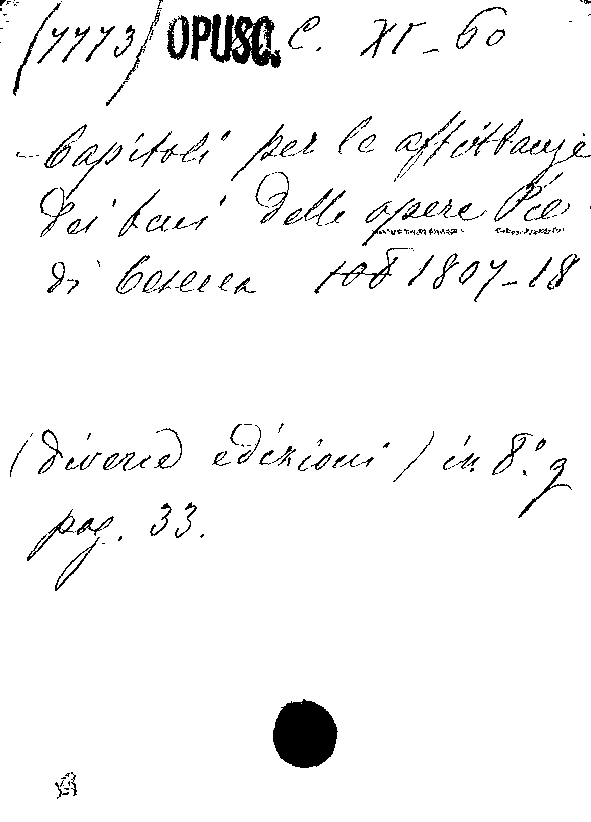 (7773) OPUSC. C. XI - 60
- Capitoli per le affittanze
dei beni delle opere Pie
di Cesena 1807-18
(diverse edizioni) in 8.° g
pag. 33.